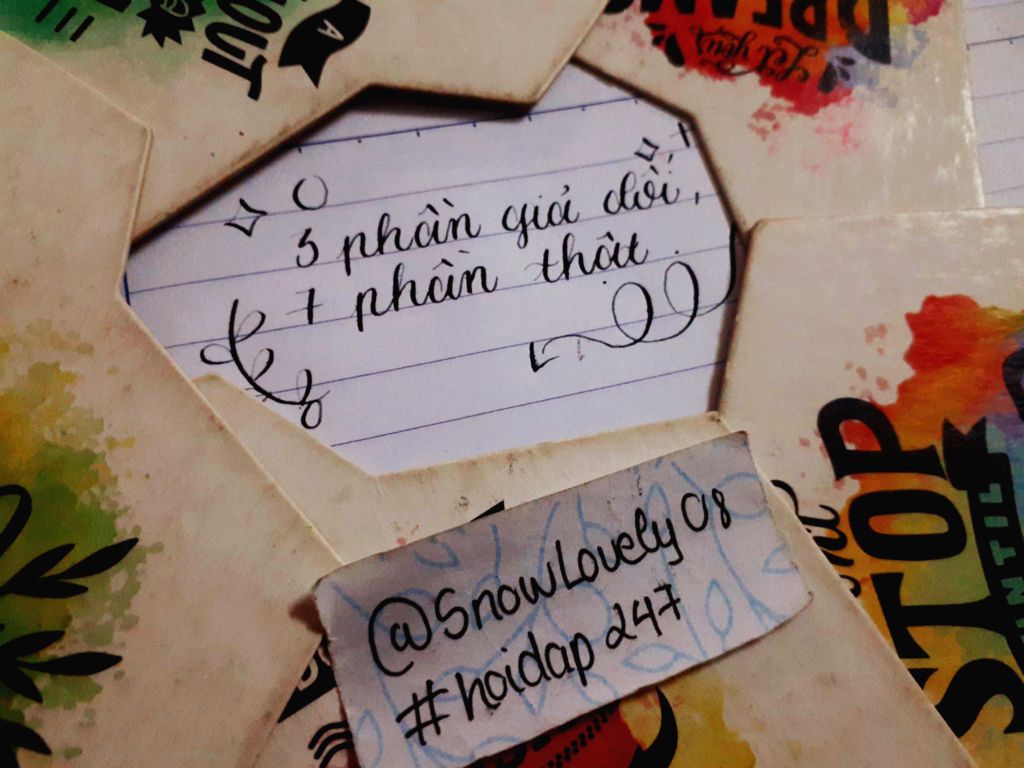 OUT
A
DREAMS
Let your
3 phần giả dối,
7 phần thật.
@SnowLovely08
#hoidap247
STOP
UNTIL